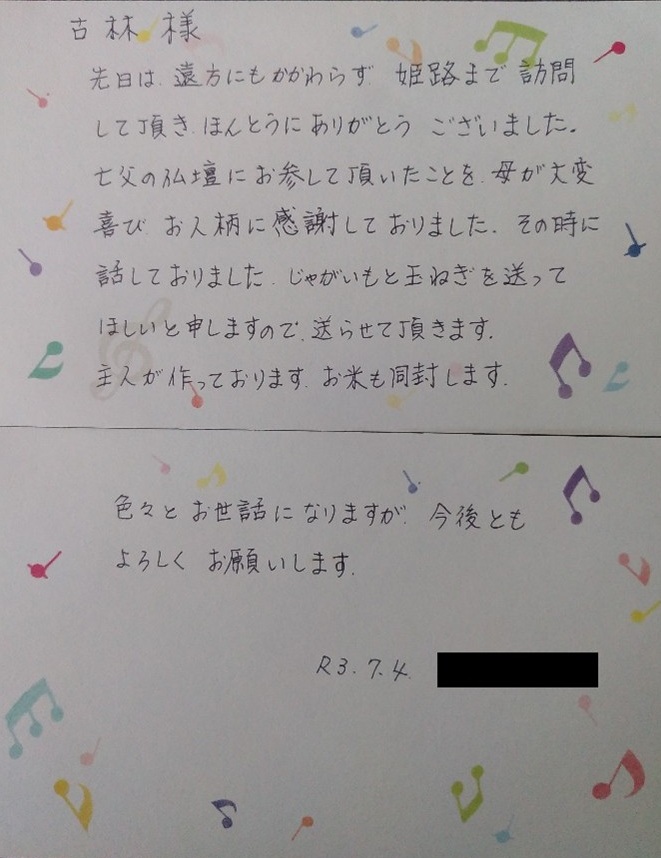 古林様
先日は、遠方にもかかわらず、姫路まで訪問
して頂き、ほんとうにありがとうございました。
亡父の仏壇にお参して頂いたことを、母が大変
喜び、お人柄に感謝しておりました。その時に
話しておりました、じゃがいもと玉ねぎを送って
ほしいと申しますので、送らせて頂きます。
主人が作っております、お米も同封します。
色々とお世話になりますが、今後とも
よろしくお願いします。
R3.7.4.